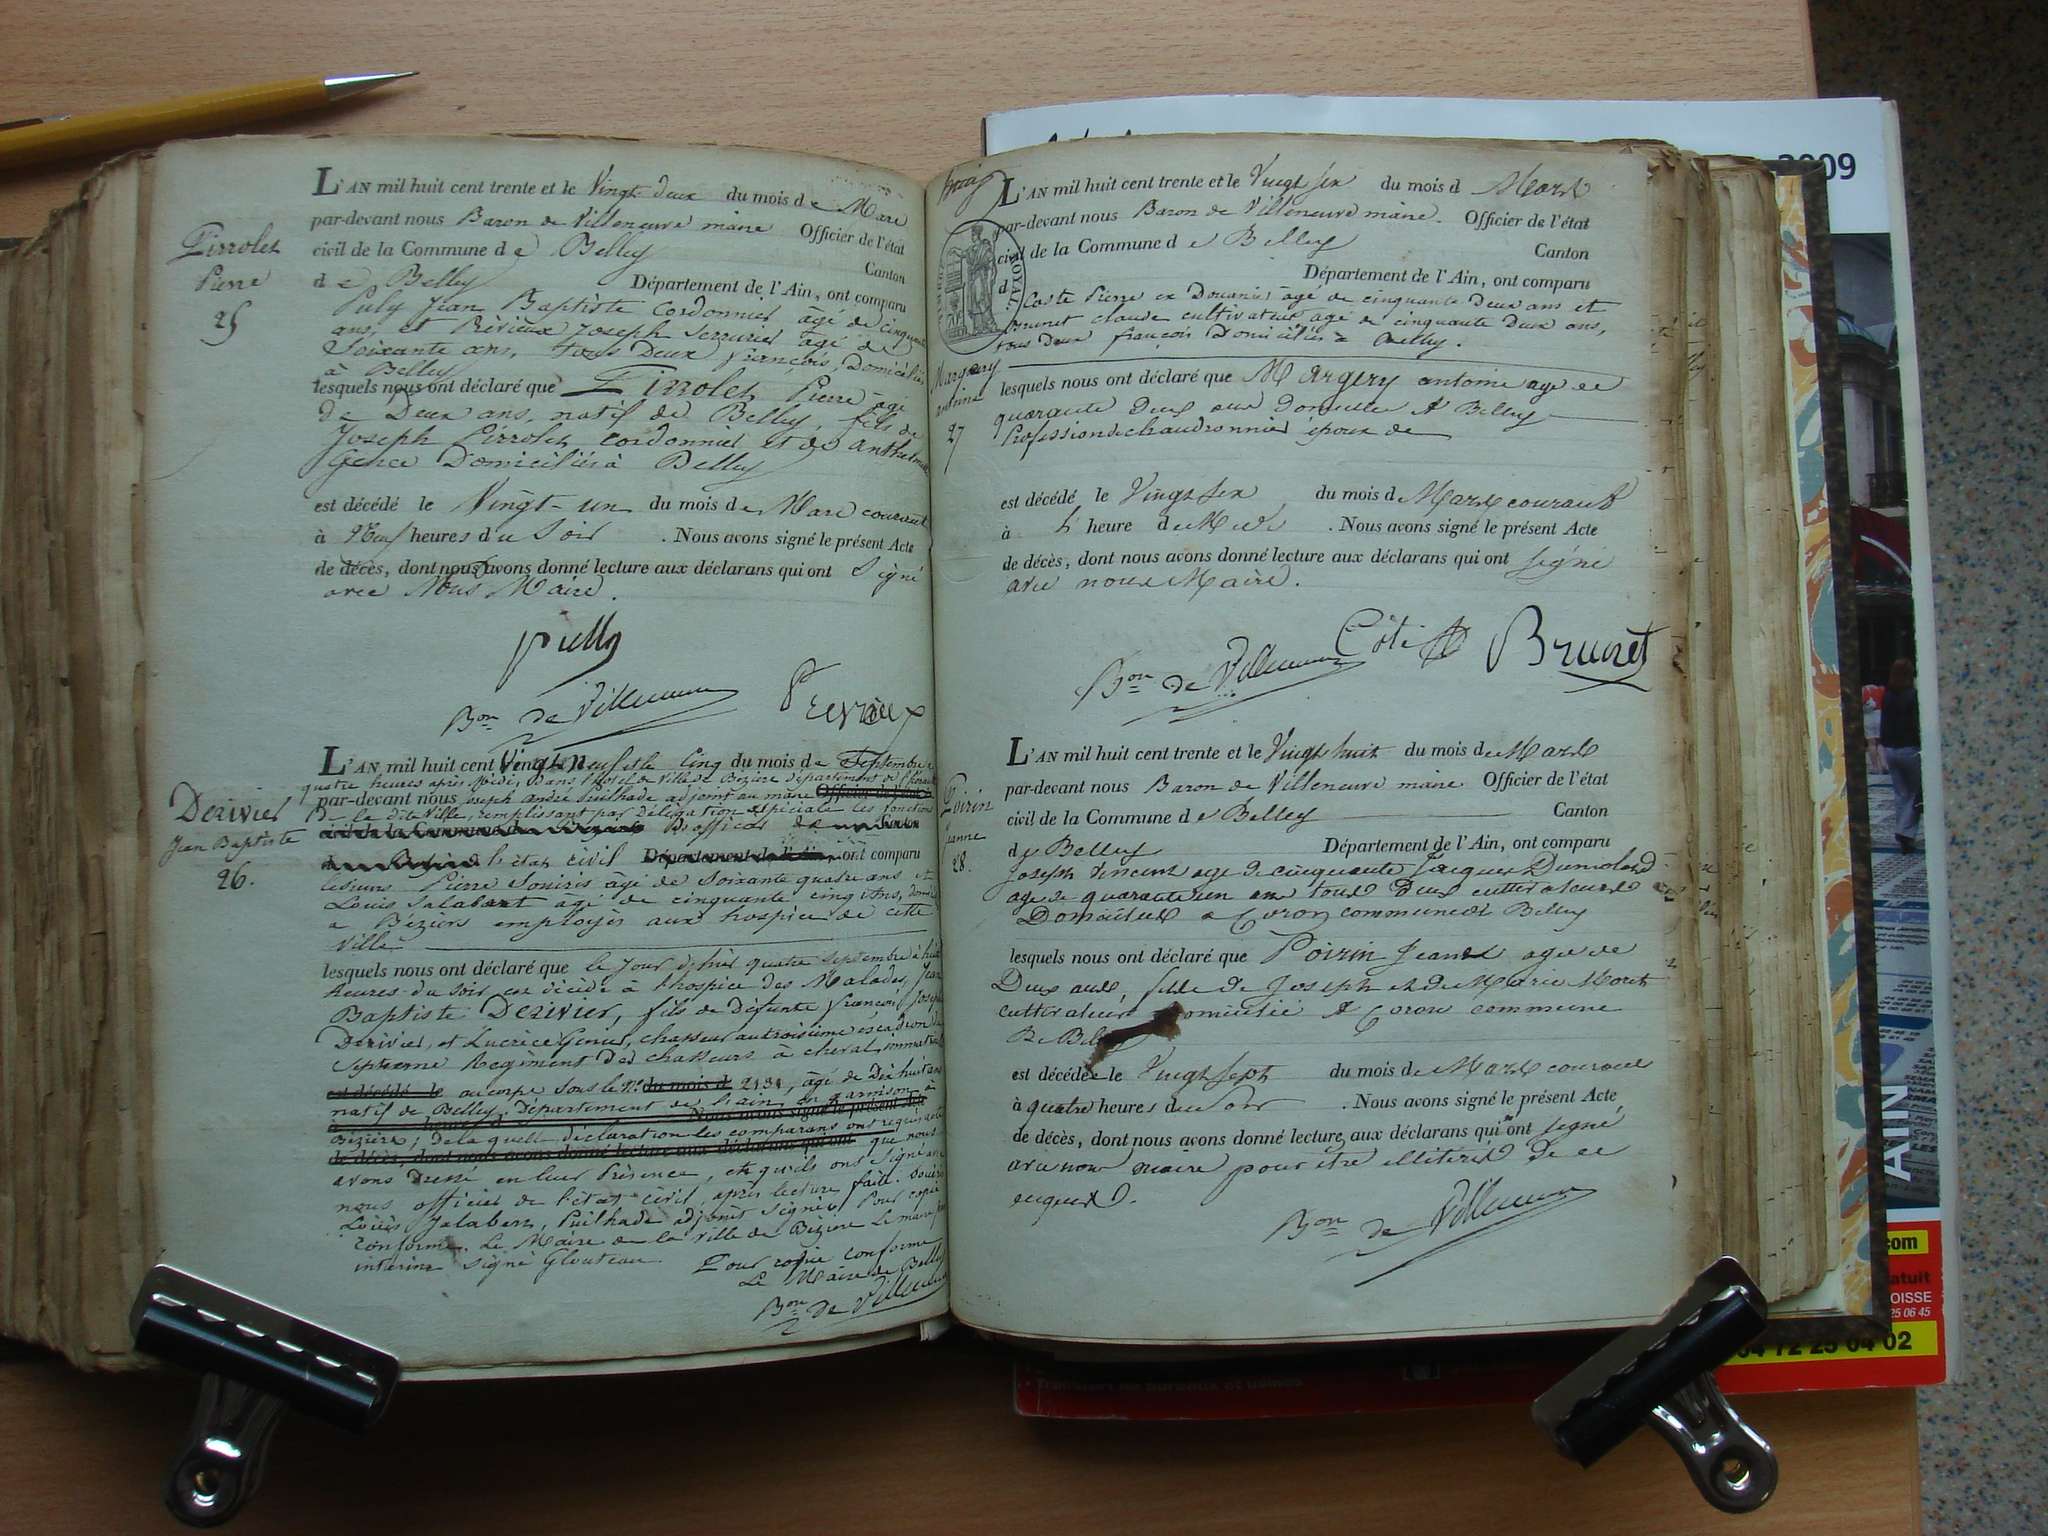 L'AN mil huit cent trente et le Vingt deux du mois de Mars
par-devant nous Baron de Villeneuve maire Officier de l'état
civil de la Commune de Belley Canton
de Belley Département de l'Ain, ont comparu
Puly Jean Baptiste Cordonnier âgé de cinquante
ans, et Revieux Joseph Serrurier âgé de
Soixante ans, tous Deux français, Domiciliés
à Belley
lesquels nous ont déclaré que Pierre âgé
de Deux ans, natif de Belley, fils de
Joseph cordonnier et de Anthelmette
Domiciliés à Belley
est décédé le Vingt-un du mois de Mars courant
à Neuf heures du Soir . Nous avons signé le présent Acte
de décès, dont nous avons donné lecture aux déclarans qui ont Signé
avec Nous Maire.
Pierre
25
pully
Bon de Villeneuve
Revieux
L'AN mil huit cent Vingt Neuf et le Cinq du mois de Septembre
quatre heures après Midi, Dans l'hotel de Ville de Bézière département de l'hérault
par-devant nous joseph andré Puilhade adjoint au maire Officier de l'état
De la dite Ville, remplissant par délégation spéciale les fonctions
civil de la Commune D'officier Canton
de l'état civil Département de l'Ain, ont comparu
les sieurs Pierre Souiris âgé de Soixante quatre ans et
Louis Jalabert agé de cinquante cinq ans,
a Béziers employés aux hospice de cette
Ville
lesquels nous ont déclaré que le jour d'hier quatre septembre à huit
heures du soir est décédé à l'hospice des Malades, Jean
Baptiste Derivier, fils de Défunts françois Joseph
Derivier, et Lucrèce Genin, chasseur au troisième éscadron du
Septieme Regiment des chasseurs à cheval, immatriculé
est décédé le au corps sous le N° du mois d 2131, âgé de Dix huit ans
natif de Belley, Département de l'ain, en garnison à
Nous avons signé le présent Acte
Bézière; de laquelle déclaration les comparans ont requis acte
de décès, dont nous avons donné lecture aux déclarans qui ont que nous
avons Dressé en leur Présence, et qu'ils ont Signé avec
nous officier de l'état civil, après lecture faite. Souiris
Louis Jalabert, Puilhade adjoint Signés Pour copie
conforme. Le Maire de la ville de Bézière Le maire par
interim signé Glouteau Pour copie conforme
Le Maire de Belley
Bon de Villeneuve
Derivier
Jean Baptiste
26.
L'AN mil huit cent trente et le Vingt six du mois d Mars
par-devant nous Baron de Villeneuve maire. Officier de l'état
civil de la Commune de Belley Canton
d Département de l'Ain, ont comparu
Coste Pierre ex Douanier âgé de cinquante Deux ans et
Brunet claude cultivateur agé de cinquante Deux ans,
tous Deux françois Domiciliés à Belley.
ROYAL
lesquels nous ont déclaré que Margery antoine age de
quarante Deux ans Domicilié A Belley
Profession de chaudronnier époux de
est décédé le Vingt six du mois d Mars courant
à heure de Midi . Nous avons signé le présent Acte
de décès, dont nous avons donné lecture aux déclarans qui ont signé
avec nous Maire.
Margery
antoine
27
Bon de Villeneuve
Brunet
L'AN mil huit cent trente et le Vingt huit du mois de Mars
par-devant nous Baron de Villeneuve maire Officier de l'état
civil de la Commune de Belley Canton
de Belley Département de l'Ain, ont comparu
Joseph Vincent agé de cinquante Jacques Dumolard
age de quarante un ans tous Deux cultivateurs
Domiciliés a Coron commune de Belley
lesquels nous ont déclaré que Poirin Jeanne agée de
Deux ans, fille de Joseph et de Marie Moret
cultivateurs domicilié A Coron commune
De Belley
est décédée le Vingt sept du mois de Mars courant
à quatre heures du Soir . Nous avons signé le présent Acte
de décès, dont nous avons donné lecture aux déclarans qui n'ont signé
avec nous maire pour être illitérés de ce
enquis.
Poirin
Jeanne
28.
Bon de Villeneuve
2009
AIN
.com
gratuit
OISSE
25 06 45
04 72 25 04 02